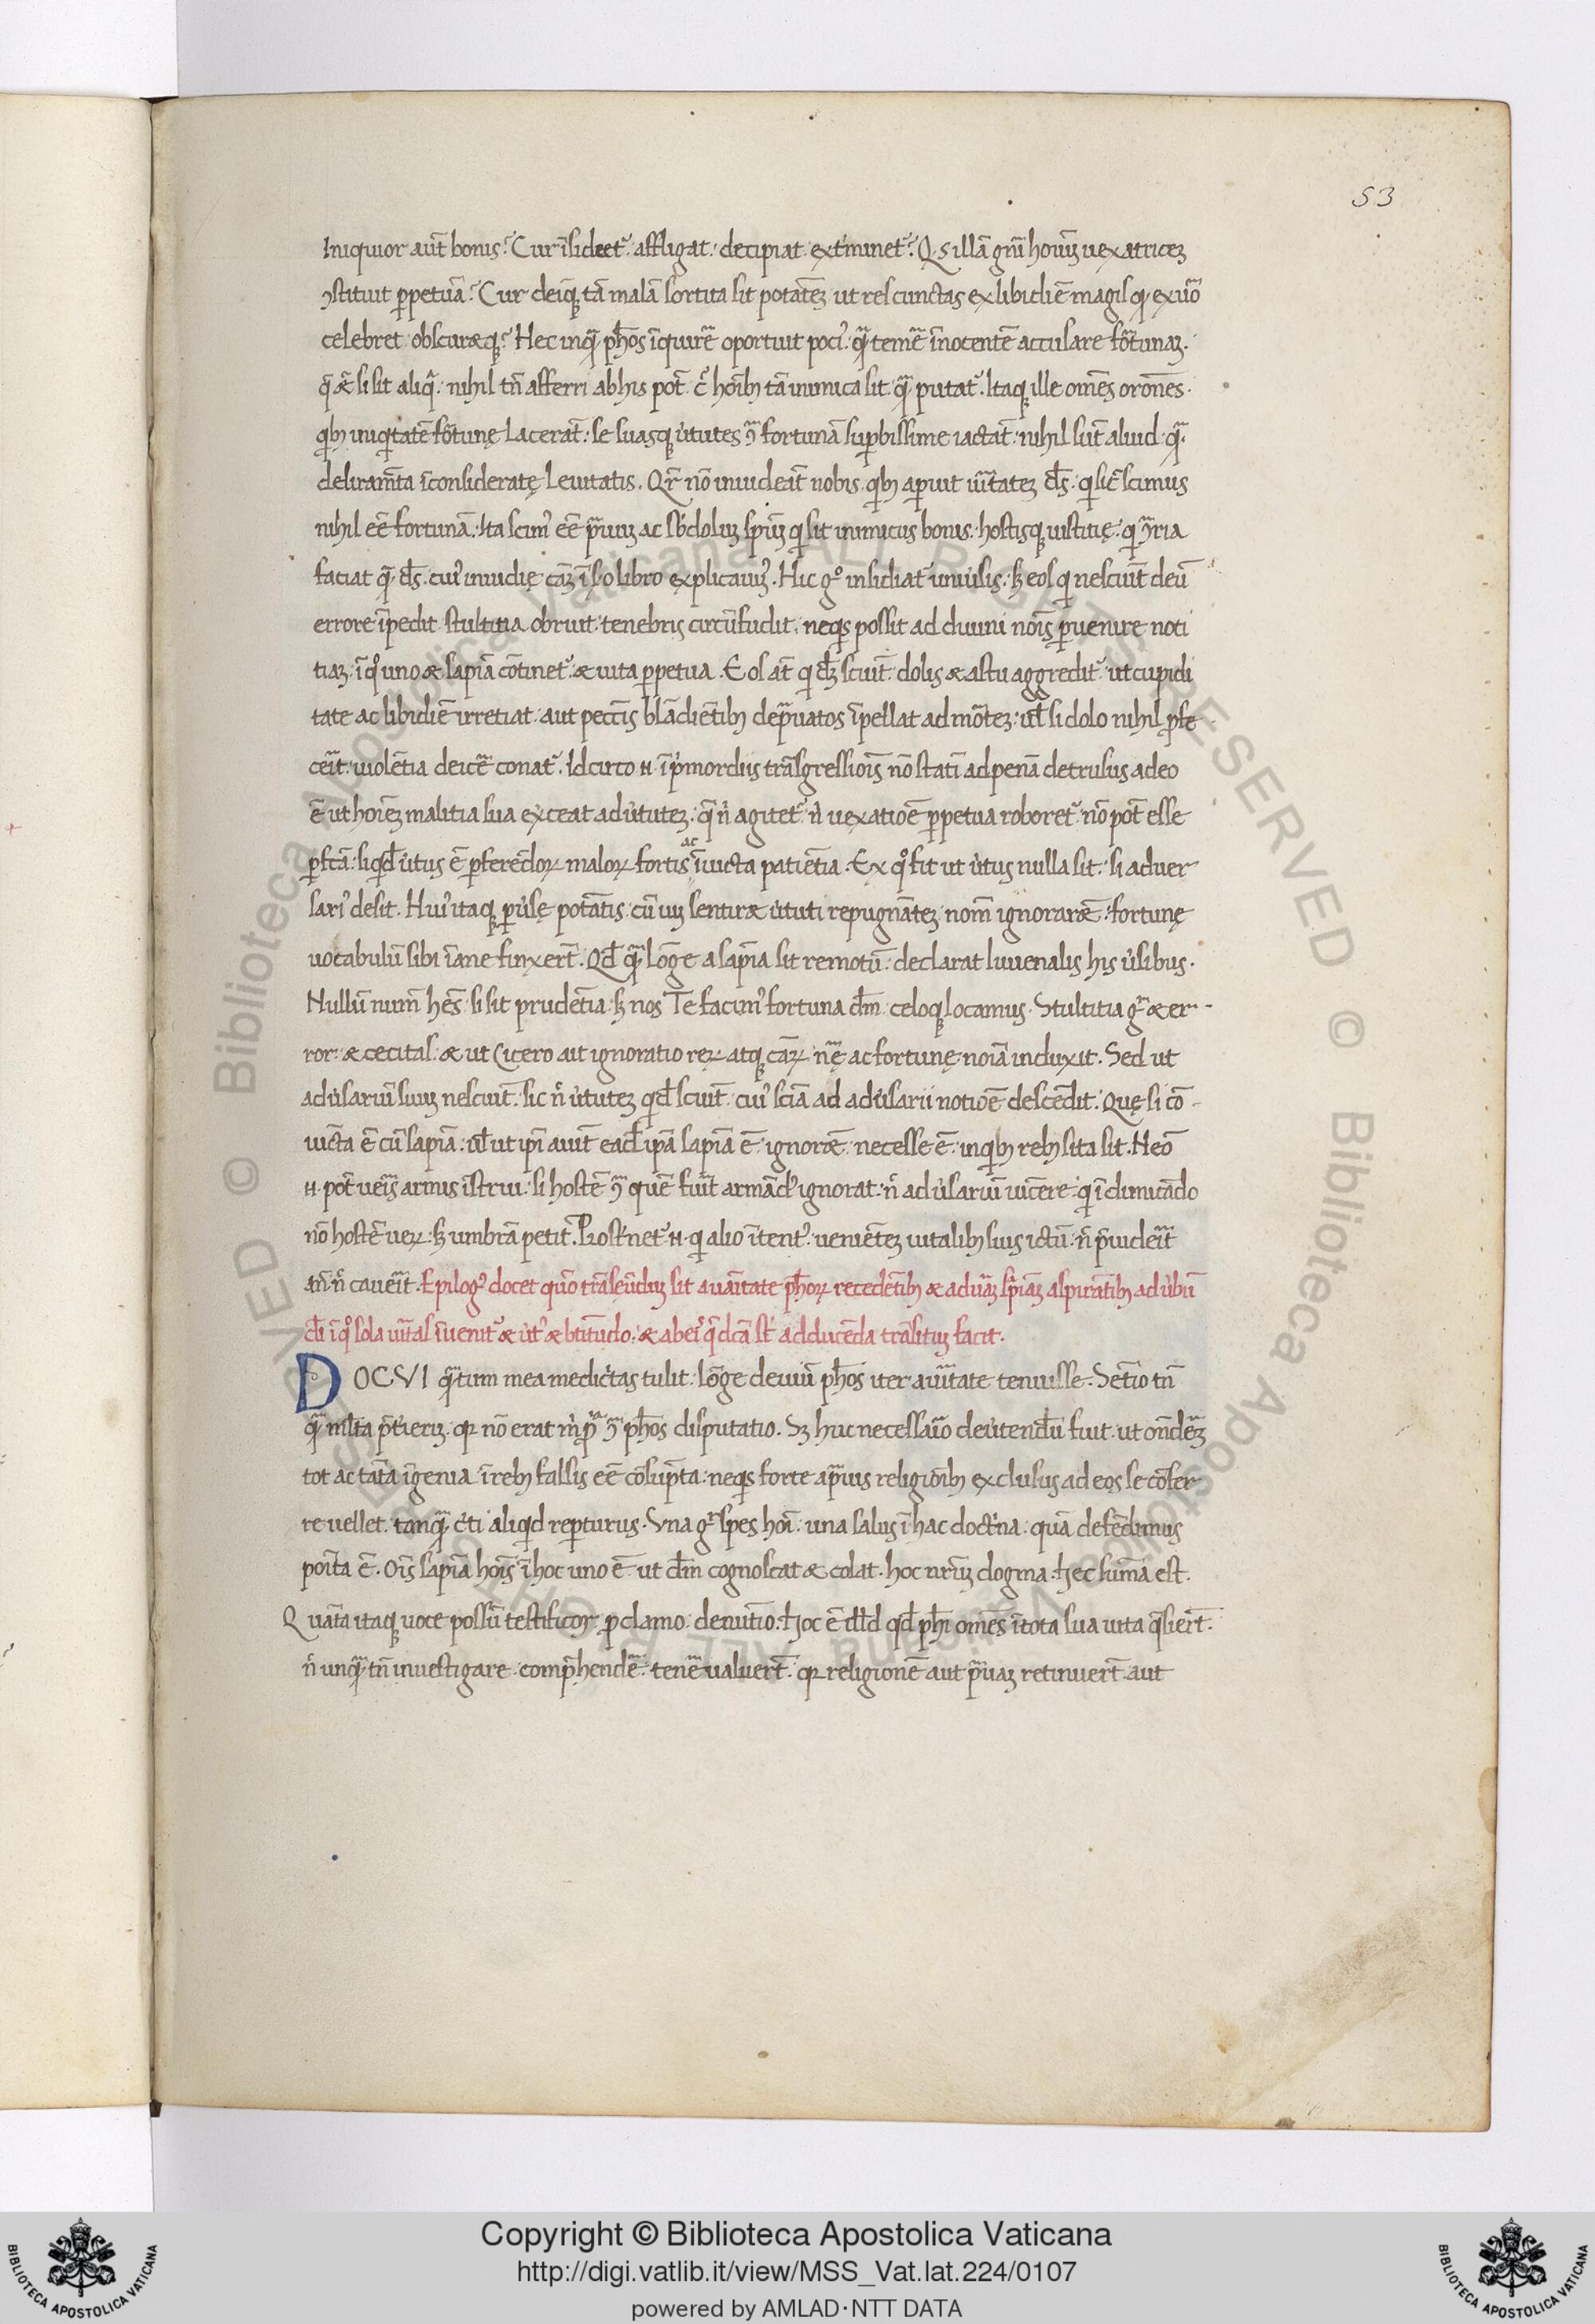 53
Iniquior aut̄ bonis? Cur īsidiet᷑. affligat. decipiat. extminet᷑? Qͥs illā gnı̄ hoıūꝫ uexatriceꝫ
ꝯstituit ꝑpetuā? Cur deiqꝫ tā malā sortita sit potātēꝫ ut res cunctas ex libidiē magis qͣ ex uͦo
celebret obscuretqꝫ? Hec inqͣ ph̄os īquirē oportuit poci᷒. qͣ temē īnocentē accusare fōrtunaꝫ.
q̄ & si sit aliqͣ. nihil tn̄ afferri ab his pot̄ c᷒ hoīb; tā inimica sit qͣ putat᷑. Itaqꝫ ille om̄s oroēs.
qͥb; iniqͥtatē fōrtunę lacerāt. se suasqꝫ ütutes ꝯͣ fortunā suꝑbissime iactāt. nihil sūt aliud qͣ
deliram̄ta īconsideratę leuitatis. Qr̄ nō inuideāt nobis. qͥb; aperuit uītateꝫ ds̄. qͥ sic̄ scimus
nihil eē fortunā. Ita scim᷒ eē pͣuuꝫ ac sb̄doluꝫ spı̄ꝫ qͥ sit inimicus bonis. hostisqꝫ iustitię. qͥ ꝯͣria
faciat qͣ ds̄. cui᷒ inuidię cāꝫ ī sͦo libro explicauim᷒. Hic gͦ insidiat᷑ uniüsis. sꝫ eos qͥ nesciūt deū
errore īpedit. stultitia obruit. tenebris circūfudit. neqͥs possit ad diuini noīs ꝑuenire noti
tiaꝫ. ī qͦ uno & sapiā cōtinet᷑. & uita ꝑpetua. Eos at̄ qͥ dm̄ sciūt. dolis & astu aggredit᷑. ut cupidi
tate ac libidiē irretiat. aut pecc̄is blādiētib; depͣuatos īpellat ad mōteꝫ. ul̄ si dolo nihil ꝓfe
cēit. uiolētia deicē conat᷑. Idcirco .n. ī pͥmordiis trāsgressiois nō statī ad penā detrusus a deo
ē ut hoıēꝫ malitia sua exceat ad ütuteꝫ. q̄ nͥ agitet᷑ nͥ uexatioē ꝑpetua roboret᷑ nō pot̄ esse
ꝑfcā. siqͥd ütus ē ꝑferēdoꝝ maloꝝ fortis ac īuicta patiētia. Ex qͦ fit ut ütus nulla sit. si aduer
sari᷒ desit. Hui᷒ itaqꝫ ꝑüsę potātis. cū uı̄ sentirēt ütuti repugnātēꝫ. nom̄ ignorarēt. fortunę
uocabulū sibi īane finxert̄. Qd̄ qͣ lōge a sapı̄a sit remotū. declarat Iuuenalis his üsibus.
Nullū num̄ hēs. si sit prudētia. sꝫ nos Te facim᷒ fortuna dm̄. celoqꝫ locamus. Stultitia gͦ & er-
ror. & cecitas. & ut Cicero ait ignoratio reꝝ atqꝫ cāꝝ. nͣę ac fortunę noıā induxit. Sed ut
adüsariū suuꝫ nesciūt. sic n̊ ütuteꝫ qͥd̄ sciūt. cui᷒ sciā ad adüsarii notioē descēdit. Quę si cō-
iūcta ē cū sapiā. ul̄ ut ipı̄ aiūt ead̄ ipā sapiā ē. ignorāt necesse ē. in qͥb; reb; sita sit. Neō
.n. pot̄ ueīs armis īstrui. si hostē ꝯͣ quē fuīt armād᷒ ignorat. n̊ adüsariū uīcere. qͥ ī dimicādo
nō hostē ueꝝ. sꝫ umbrā petit. Prost̄net᷑ .n. qͥ alio ītent᷒. ueniētēꝫ uitalib; suis ictū. n̊ pͣuideīt
an̄. n̊ caueīt. Epilog᷒ docet quō trāseūduꝫ sit a uāitate ph̄oꝝ recedētib; & ad uāꝫ sp̄iāꝫ aspirātib; ad übū
dı̄ ī qͦ sola uītas īuenit᷑ & üt᷒ & btitudo. & ab ei᷒ qͥdcā st̄ adducēda trāsituꝫ facit.
DOCVI qͣtum mea mediocͥtas tulit. lōge deuiū ph̄os iter a uītate tenuisse. Sētio tn̄
qͣ mlta p̄tierıꝫ. qꝛ nō erat m̊ ꝓpͥa ꝯͣ ph̄os disputatio. Sꝫ huc necessaıō deütendū fuit. ut on̄dēꝫ
tot ac tāta īgenia ī reb; falsis eē cōsūpta. neqͥs forte a pͣuis religioīb; exclusus ad eos se cōfer
re uellet. tanqͣ c̊ti aliqͥd reꝑturus. Vna gͦ spes hoı̄. una salus ī hac doctͥna. quā defēdimus
poīta ē. Oı̄s sapiā hoīs ī hoc uno ē. ut dm̄ cognoscat & colat. hoc nr̄uꝫ dogma. hec sum̄a est.
Quāta itaqꝫ uoce possū testificor. ꝓclamo. denūtio. hoc ē illd̄ qd̄ ph̄i om̄es ī tota sua uita q̄siert̄.
n̊ unqͣ tn̄ inuestigare. comp̄hendē. tenē ualuert̄. qꝛ religionē aut pͣuaꝫ retinuert̄. aut
Copyright © Biblioteca Apostolica Vaticana
http://digi.vatlib.it/view/MSS_Vat.lat.224/0107
powered by AMLAD·NTT DATA